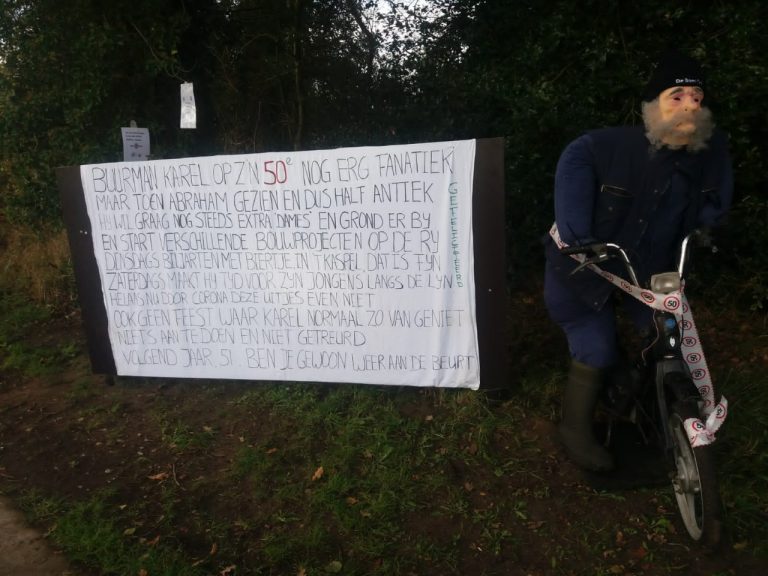 BUURMAN KAREL OP Z'N 50e NOG ERG FANATIEK
MAAR TOEN ABRAHAM GEZIEN EN DUS HALF ANTIEK
HY WIL GRAAG NOG STEEDS EXTRA 'DAMES' EN GROND ER BY
EN START VERSCHILLENDE BOUWPROJECTEN OP DE RY
DINSDAGS BILJARTEN MET BIERTJE IN 'T KISPEL, DAT IS FYN
ZATERDAGS MAAKT HY TYD VOOR ZYN JONGENS LANGS DE LYN
HELAAS NU DOOR CORONA DEZE UITJES EVEN NIET
OOK GEEN FEEST WAAR KAREL NORMAAL ZO VAN GENIET
NIETS AAN TE DOEN EN NIET GETREURD
VOLGEND JAAR, 51. BEN JE GEWOON WEER AAN DE BEURT
GEFELICITEERD
50
50
50